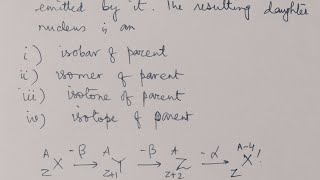 emitted by it. The resulting daughter
nucleus is an
i) isobar of parent
ii) isomer of parent
iii) isotone of parent
iv) isotope of parent
A X Z −β→ A Y Z+1 −β→ A Z Z+2 −α→ A-4 X' Z